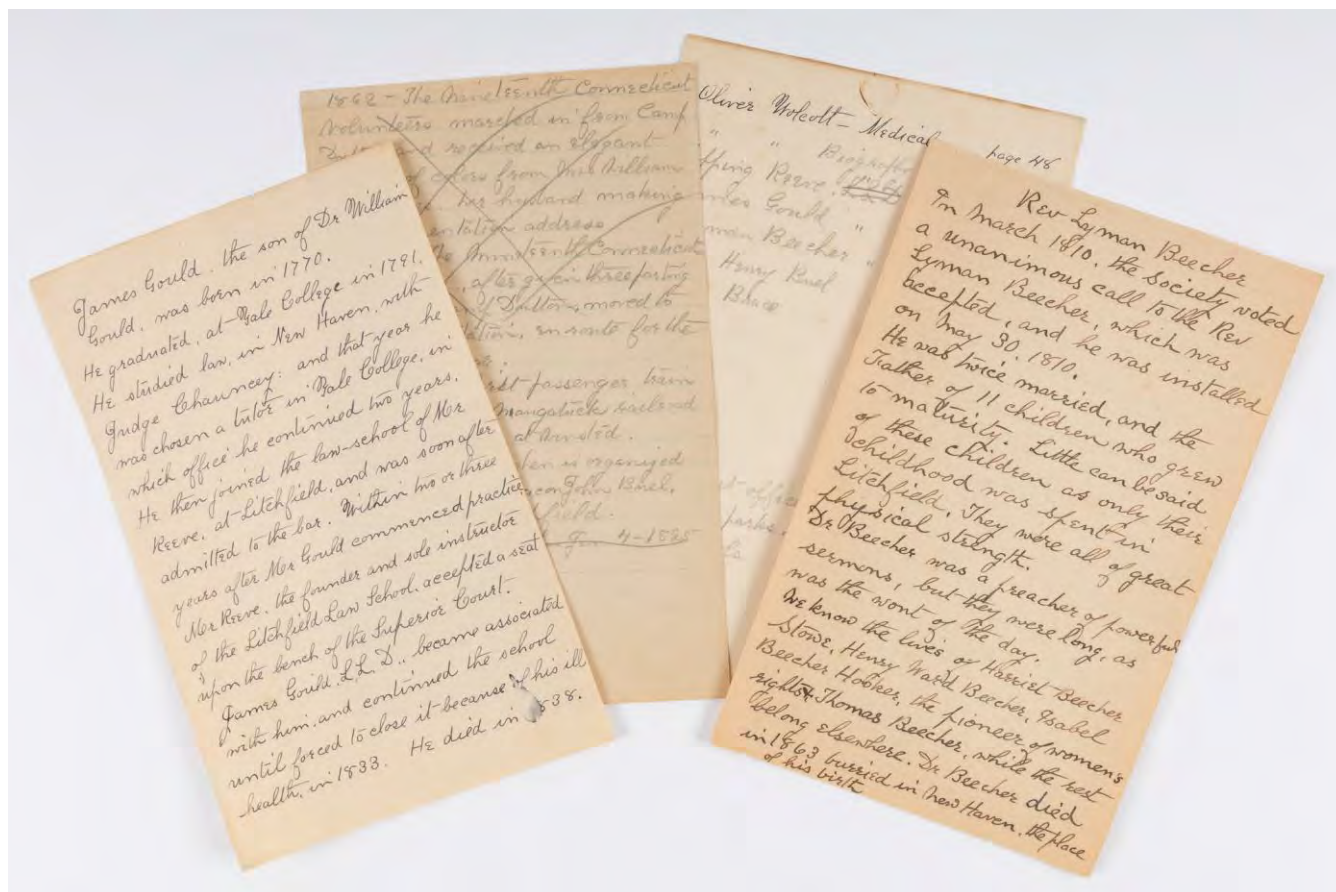 James Gould, the son of Dr William
Gould, was born in 1770.
He graduated, at Yale College in 1791.
He studied law, in New Haven, with
Judge Chauncey; and that year he
was chosen a tutor in Yale College, in
which office he continued two years.
He then joined the law-school of Mr
Reeve, at Litchfield, and was soon after
admitted to the bar. Within two or three
years after Mr Gould commenced practice,
Mr Reeve, the founder and sole instructor
of the Litchfield Law School, accepted a seat
upon the bench of the Superior Court.
James Gould, L.L.D., became associated
with him, and continued the school
until forced to close it because of his ill
health, in 1833. He died in 1838.
1862 - The Nineteenth Connecticut
Volunteers marched in from Camp
and received an elegant
of colors from Mrs William
her husband making
address
Nineteenth Connecticut
, after in three parting
Dutton, moved to
, en route for the
passenger train
Naugatuck railroad
at Winsted.
is organized
John Buel,
4-1885
Oliver Wolcott - Medical page 48
" "
Reeve
Gould "
Beecher "
Henry Ruel
Brace
office
parks
Rev Lyman Beecher
In March 1810, the society voted
a unanimous call to the Rev
Lyman Beecher, which was
accepted, and he was installed
on May 30, 1810.
He was twice married, and the
Father of 11 children who grew
to maturity. Little can be said
of these children as only their
childhood was spent in
Litchfield. They were all of great
physical strength.
Dr Beecher was a preacher of powerful
sermons, but they were long, as
was the wont of the day.
We know the lives of Harriet Beecher
Stowe, Henry Ward Beecher, Isabel
Beecher Hooker, the pioneer of women's
rights & Thomas Beecher, while the rest
belong elsewhere. Dr Beecher died
in 1863 burried in New Haven, the place
of his birth